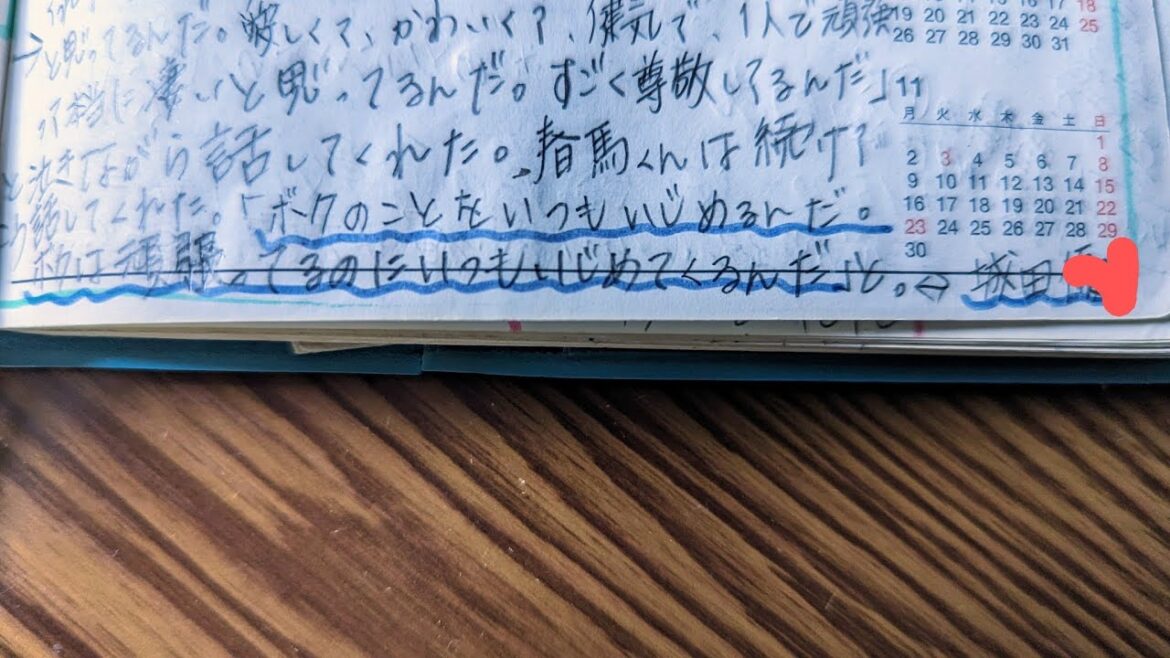 と思ってるんだ。優しくて、かわいくて、健気で、1人で頑張
って本当に凄いと思ってるんだ。すごく尊敬してるんだ」
と泣きながら話してくれた。春馬くんは続けて
話してくれた。「ボクのことをいつもいじめるんだ。
ボクは頑張ってるのにいつもいじめてくるんだ」と。⇔ 城田
16 17 18
19 20 21 22 23 24 25
26 27 28 29 30 31
11
月 火 水 木 金 土 日
1
2 3 4 5 6 7 8
9 10 11 12 13 14 15
16 17 18 19 20 21 22
23 24 25 26 27 28 29
30